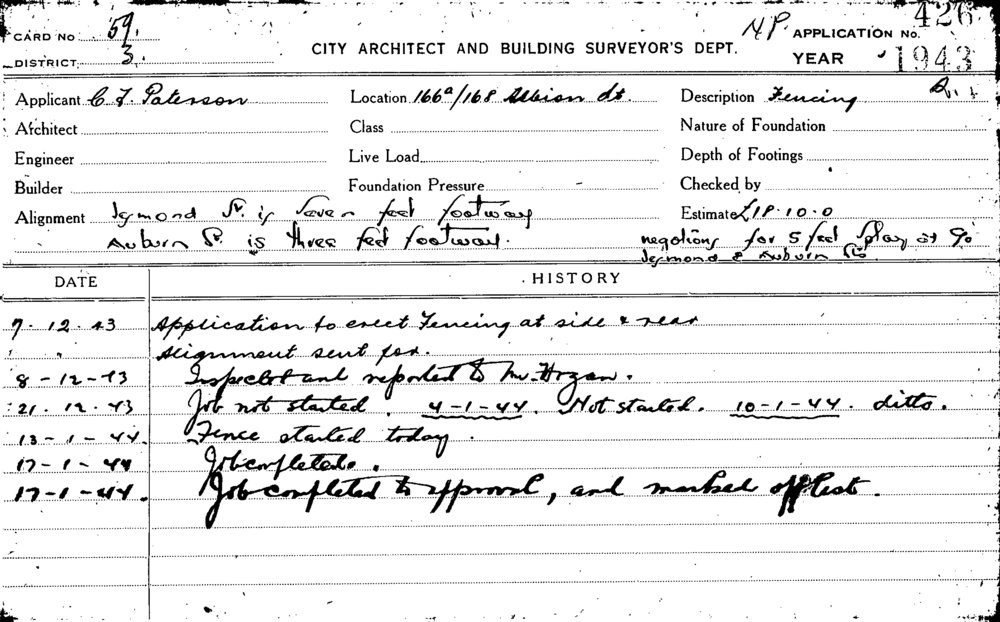 CARD No 59. N.P. APPLICATION No. 426
DISTRICT 3. CITY ARCHITECT AND BUILDING SURVEYOR'S DEPT. YEAR 1943
Applicant C J Paterson Location 166a/168 Albion St. Description Fencing
Architect Class Nature of Foundation
Engineer Live Load Depth of Footings
Builder Foundation Pressure Checked by
Alignment St. is seven feet footway Estimate £18.10.0
Auburn St. is three feet footway. for 5 feet splay at
& Auburn Sts
DATE HISTORY
7.12.43 Application to erect Fencing at side & rear
" " Alignment sent for.
8-12-43 Inspected and reported to Mr. Hogan.
21.12.43 Job not started. 4-1-44. Not started. 10-1-44. ditto.
13-1-44. Fence started today.
17-1-44 Job completed.
17-1-44. Job completed to approval, and marked off list.